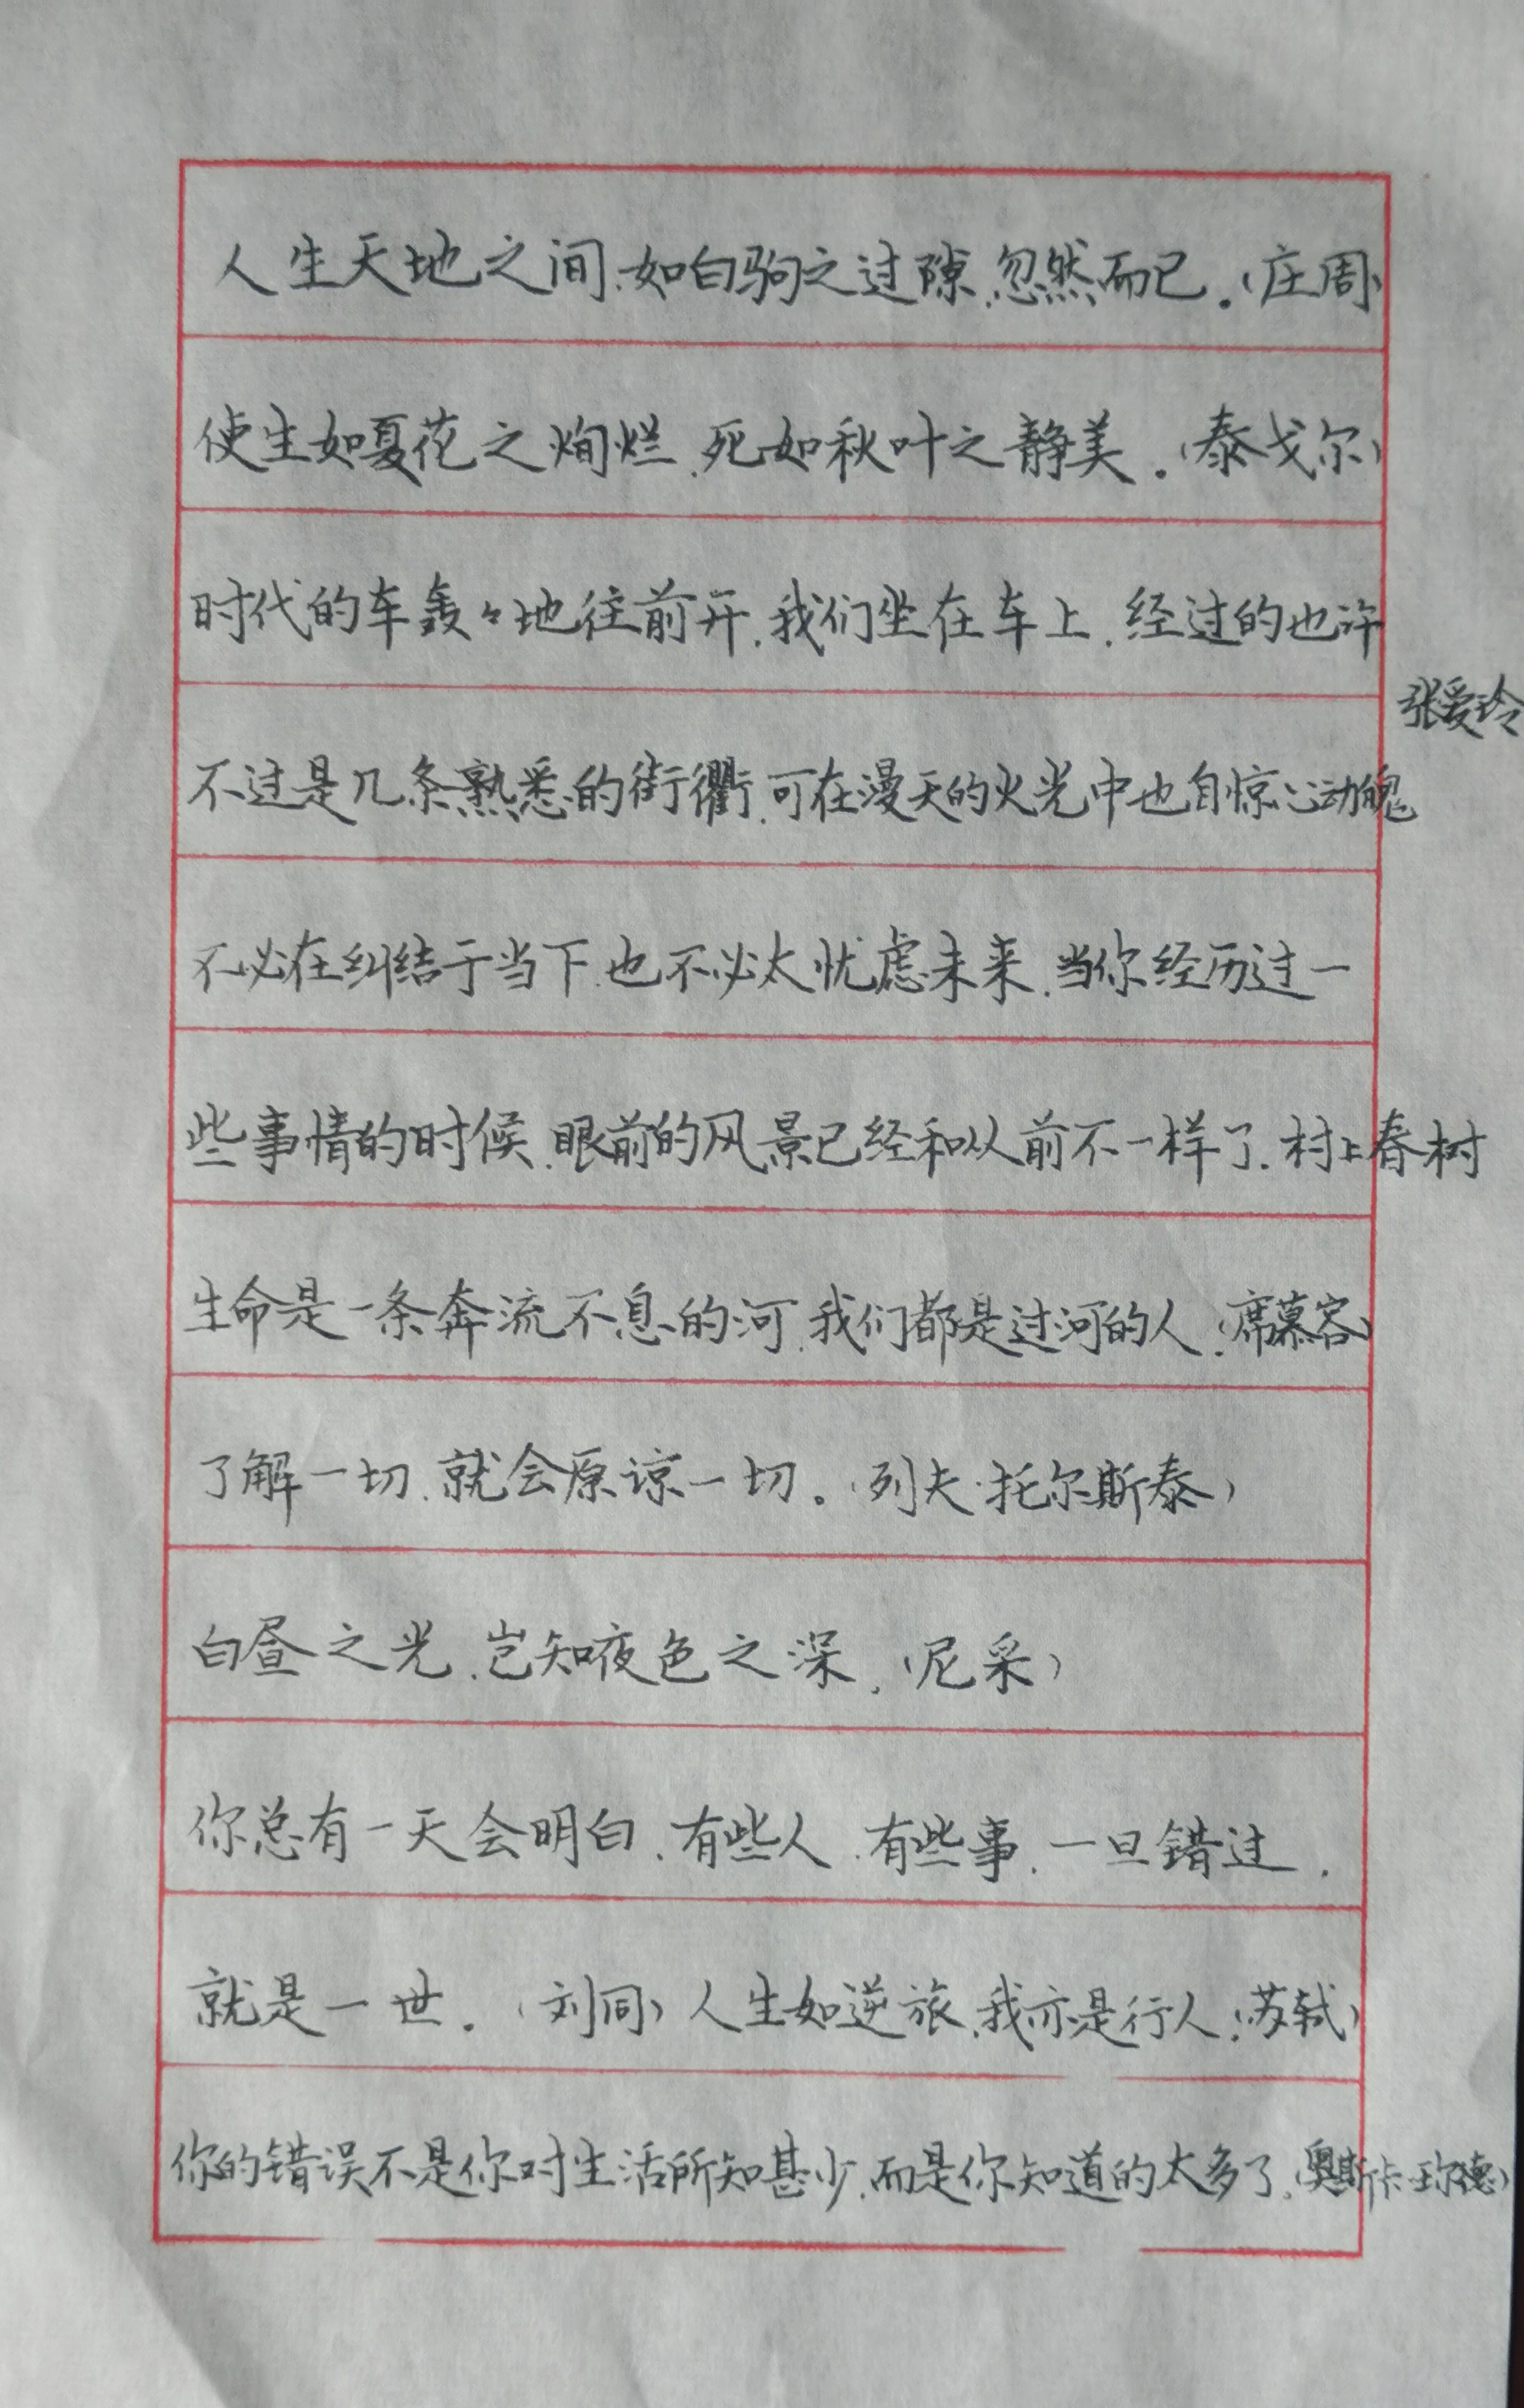 人生天地之间、如白驹之过隙、忽然而已。（庄周）
使生如夏花之绚烂、死如秋叶之静美。（泰戈尔）
时代的车轰々地往前开、我们坐在车上、经过的也许
张爱玲
不过是几条熟悉的街衢、可在漫天的火光中也自惊心动魄
不必在纠结于当下、也不必太忧虑未来、当你经历过一
些事情的时候、眼前的风景已经和从前不一样了、村上春树
生命是一条奔流不息的河、我们都是过河的人、（席慕容）
了解一切、就会原谅一切。（列夫·托尔斯泰）
白昼之光、岂知夜色之深、（尼采）
你总有一天会明白、有些人、有些事、一旦错过、
就是一世。（刘同）人生如逆旅、我亦是行人、（苏轼）
你的错误不是你对生活所知甚少、而是你知道的太多了、（奥斯卡·德）